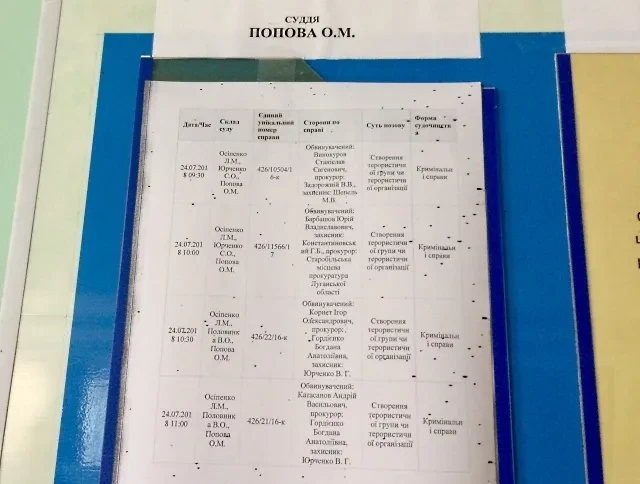 СУДДЯ
ПОПОВА О.М.
Дата/Час
Склад
суду
Єдиний
унікальний
номер
справи
Сторони по
справі
Суть позову
Форма
судочинств
а
24.07.201
8 09:30
Осіпенко
Л.М.,
Юрченко
С.О.,
Попова
О.М.
426/10504/1
6-к
Обвинувачений:
Винокуров
Станіслав
Євгенович,
прокурор:
Задорожній В.В.,
захисник: Шепель
М.В.
Створення
терористичн
ої групи чи
терористичн
ої організації
Кримінальн
і справи
24.07.201
8 10:00
Осіпенко
Л.М.,
Юрченко
С.О.,
Попова
О.М.
426/11566/1
7
Обвинувачений:
Барбашов Юрій
Владиславович,
захисник:
Константиновськ
ий Г.Б., прокурор:
Старобільська
місцева
прокуратура
Луганської
області
Створення
терористичн
ої групи чи
терористичн
ої організації
Кримінальн
і справи
24.07.201
8 10:30
Осіпенко
Л.М.,
Половинк
а В.О.,
Попова
О.М.
426/22/16-к
Обвинувачений:
Корнет Ігор
Олександрович,
прокурор:
Гордієнко
Богдана
Анатоліївна,
захисник:
Юрченко В. Г.
Створення
терористичн
ої групи чи
терористичн
ої організації
Кримінальн
і справи
24.07.201
8 11:00
Осіпенко
Л.М.,
Половинк
а В.О.,
Попова
О.М.
426/21/16-к
Обвинувачений:
Катасанов Андрій
Васильович,
прокурор:
Гордієнко
Богдана
Анатоліївна,
захисник:
Юрченко В. Г.
Створення
терористичн
ої групи чи
терористичн
ої організації
Кримінальн
і справи